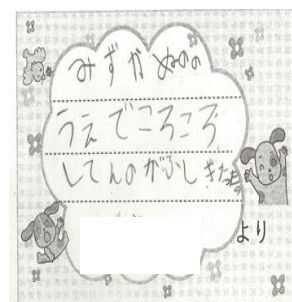 みずかぬのの
うえでころころ
してんのがふしきだも
より